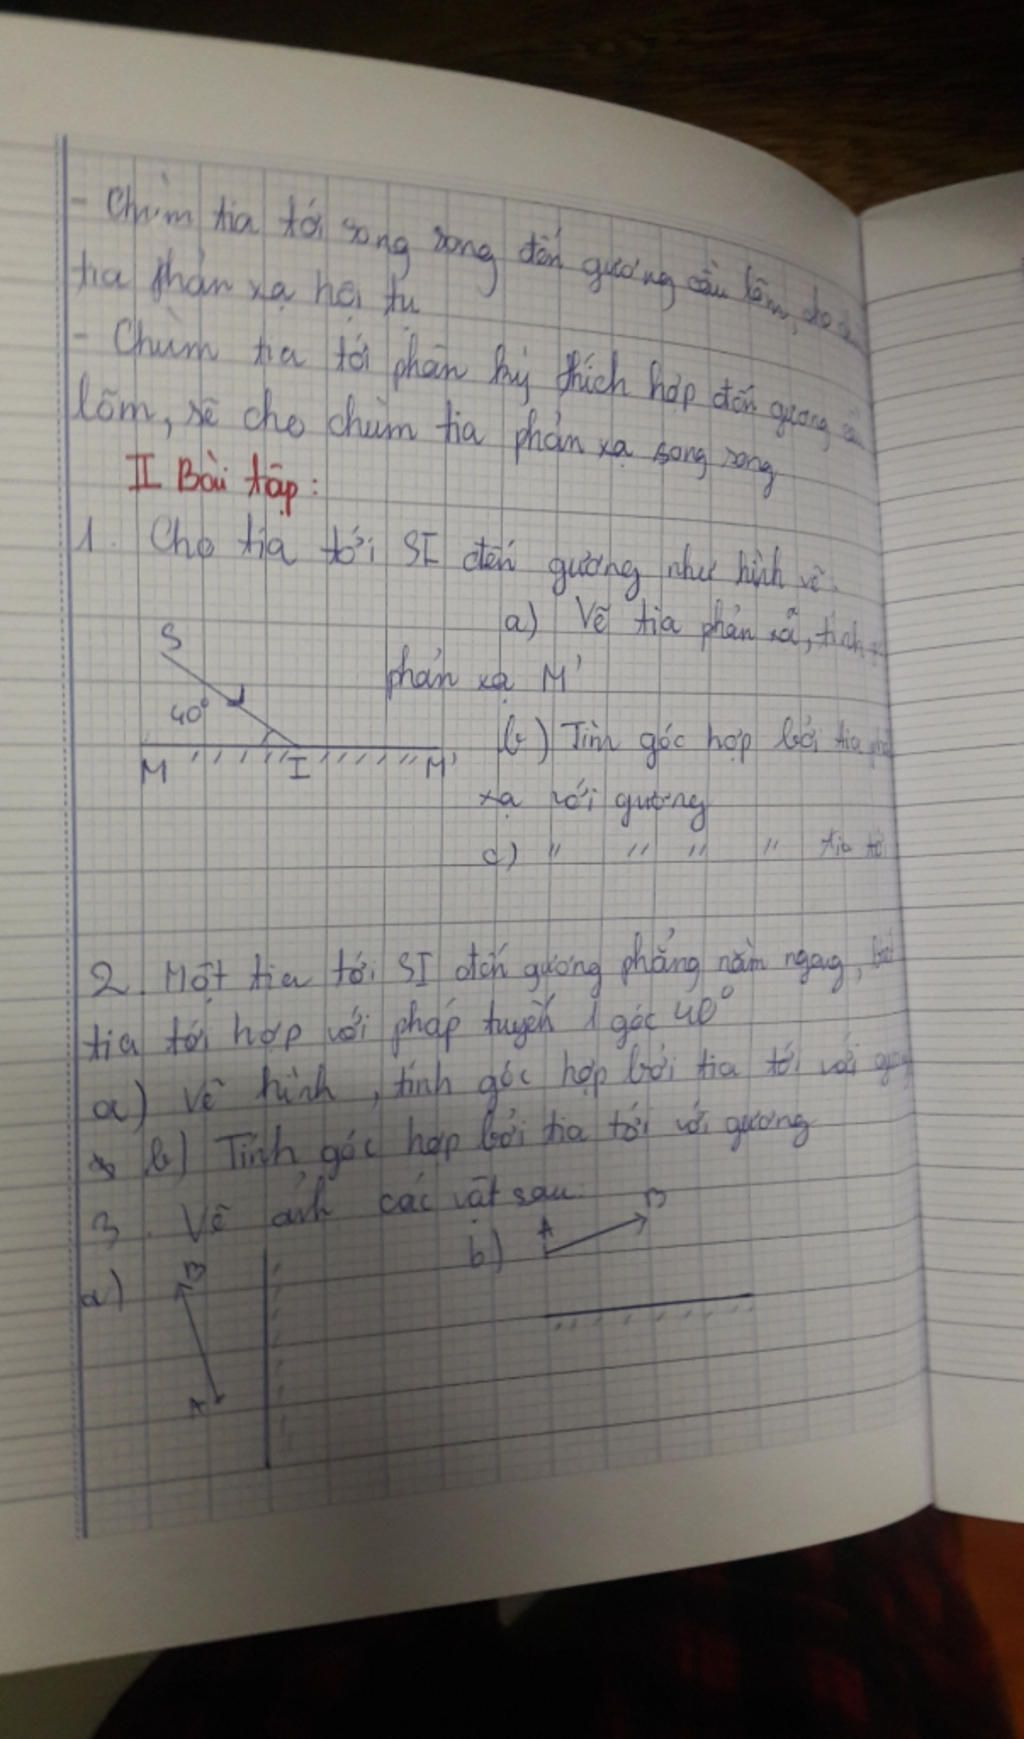 - Chùm tia tới song song đến gương cầu lõm, cho
tia phản xạ hội tụ
- Chùm tia tới phân kỳ thích hợp đến gương
lõm, sẽ cho chùm tia phản xạ song song
II Bài tập:
1. Cho tia tới SI đến gương như hình vẽ.
a) Vẽ tia phản xạ, tính
phản xạ M'
S
40°
M I M'
b) Tính góc hợp bởi tia
xạ với gương
c) " " " " tia tới
2. Một tia tới SI đến gương phẳng nằm ngang,
tia tới hợp với pháp tuyến 1 góc 40°
a) Vẽ hình, tính góc hợp bởi tia tới với
b) Tính góc hợp bởi tia tới với gương
3. Vẽ ảnh các vật sau:
a) B A
b) A B